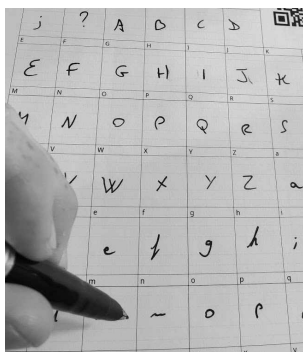 ; ? A B C D
E F G H I J K
E F G H I J K
M N O P Q R S
M N O P Q R S
V W X Y Z a
V W X Y Z a
e f g h i
e f g h i
m n o p q
n o p